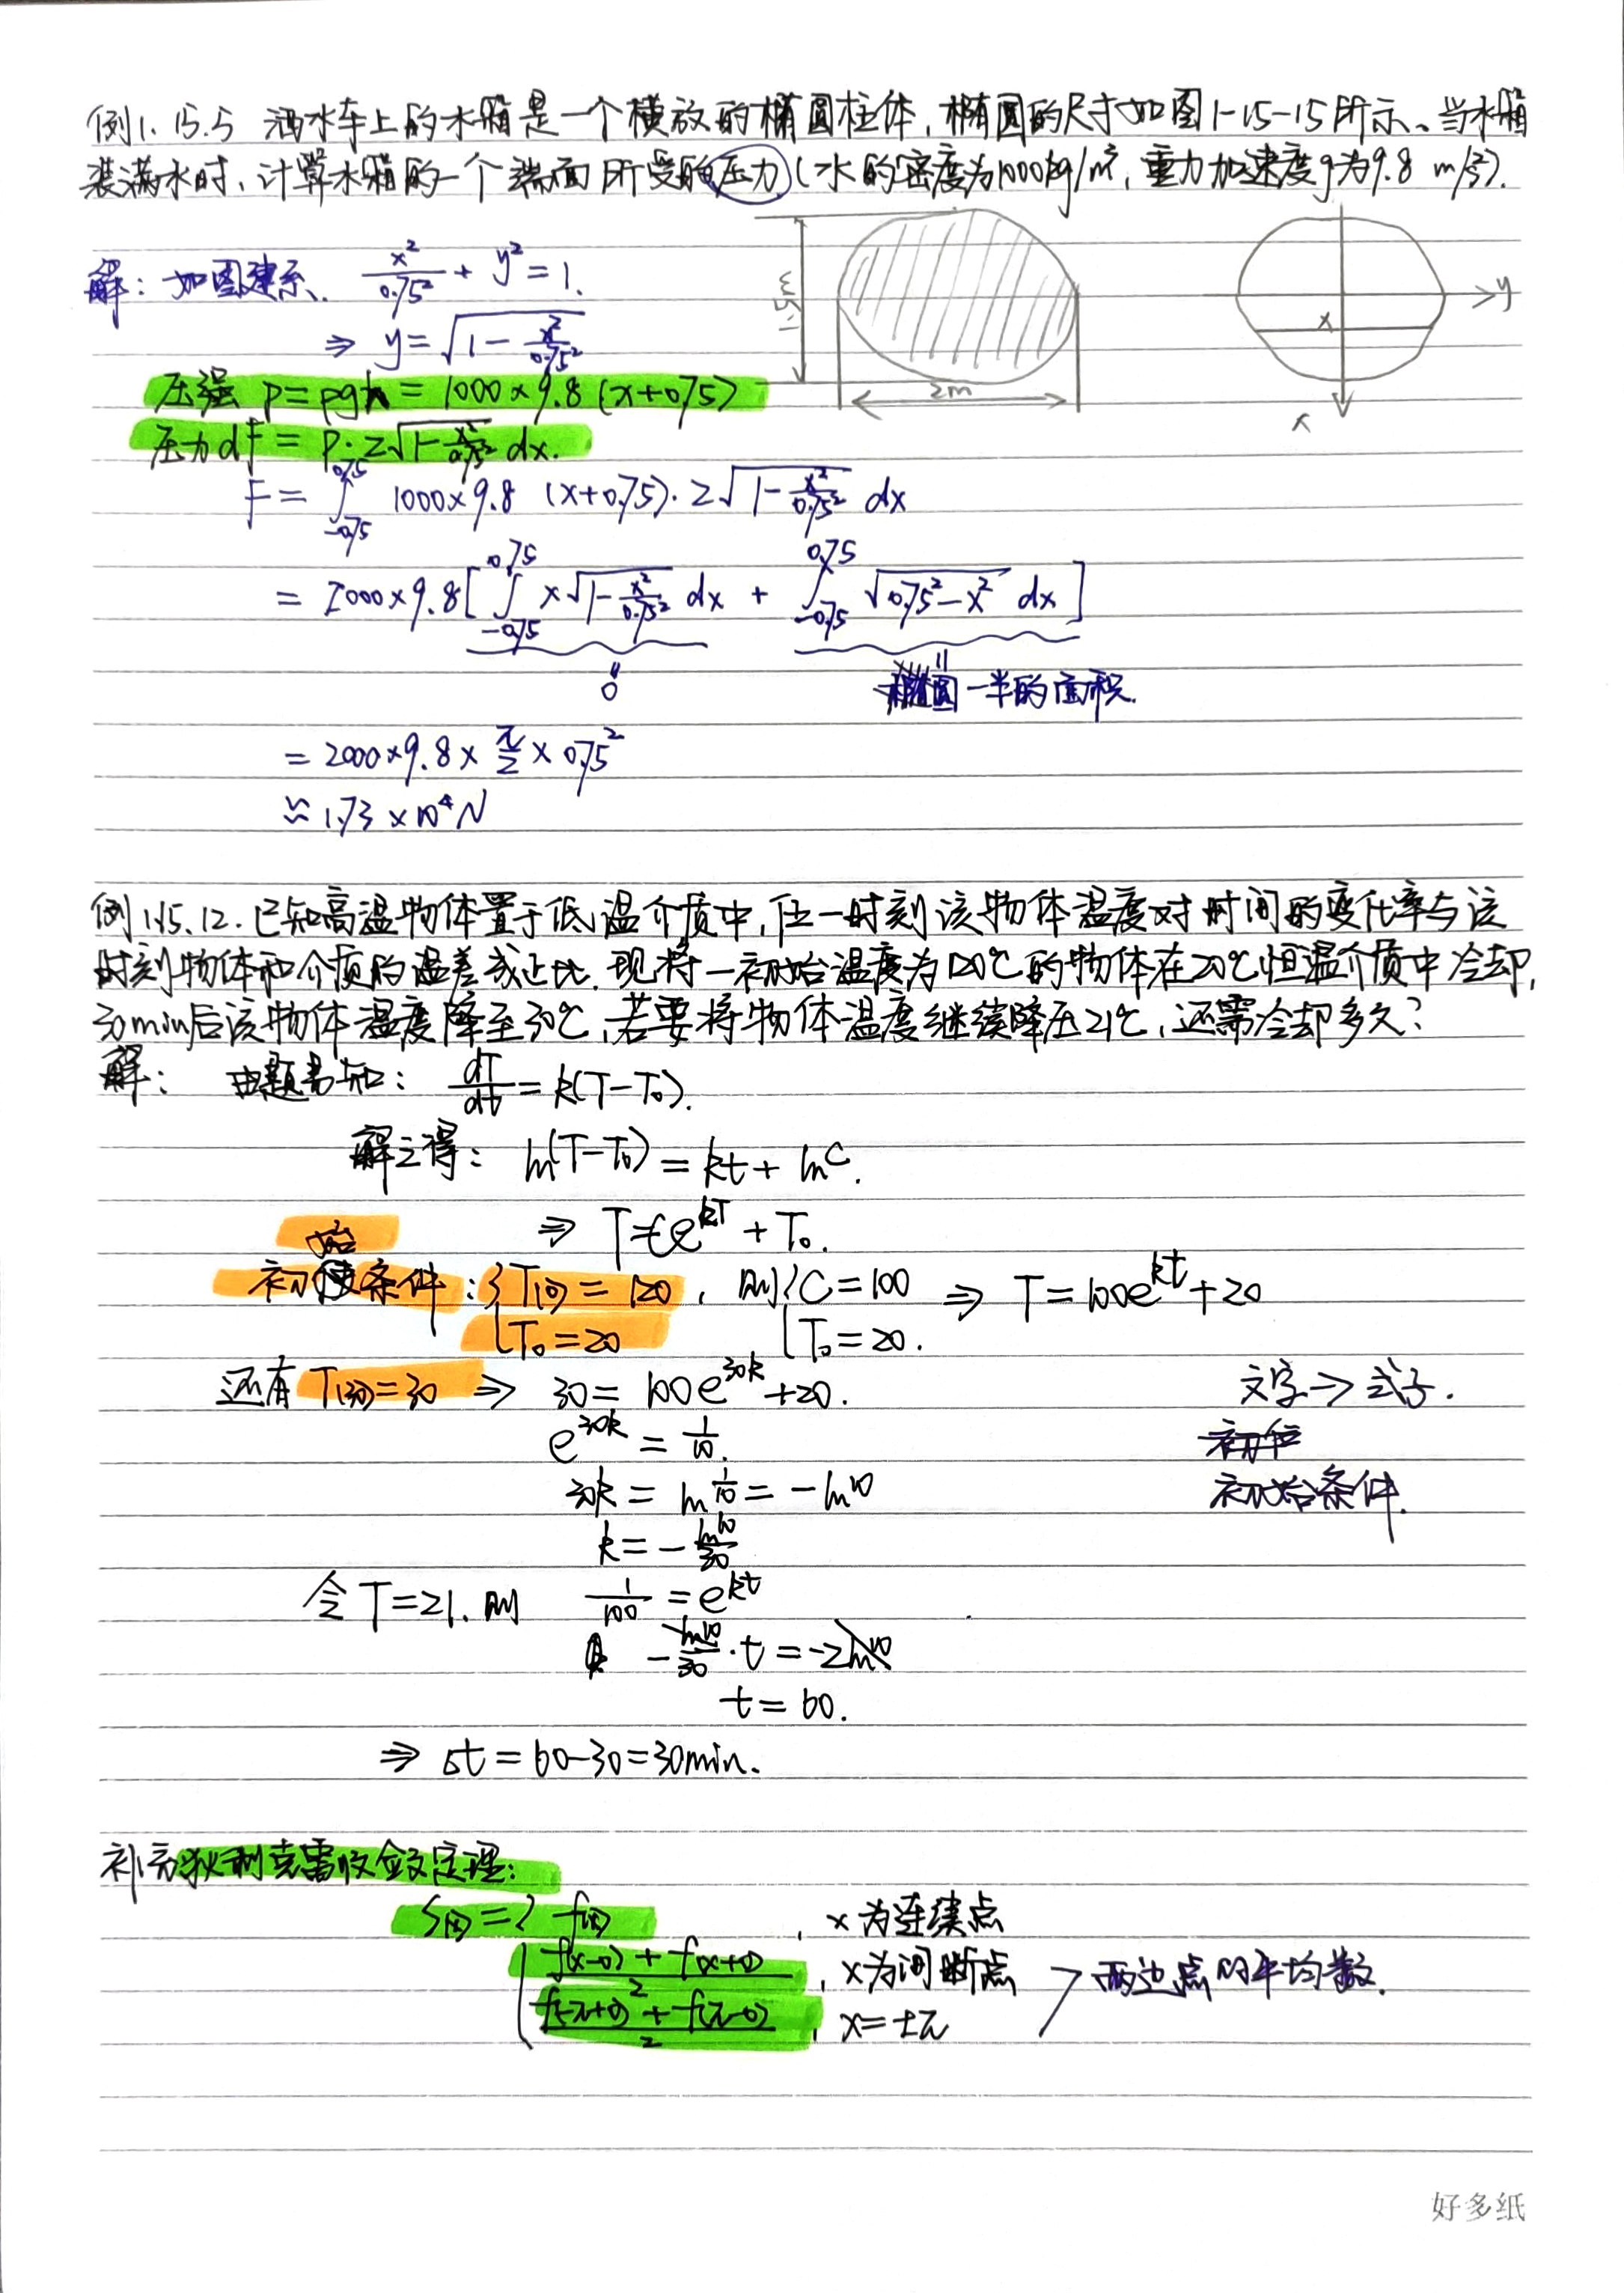 例1.15.5 洒水车上的水箱是一个横放的椭圆柱体,椭圆的尺寸如图1-15-15所示、当水箱
装满水时,计算水箱的一个端面所受的压力(水的密度为1000kg/m³,重力加速度g为9.8 m/s²).
解:如图建系、 x²/0.75² + y² = 1.
⇒ y = √(1 - x²/0.75²)
1.5m
2m
y
x
x
压强 P = ρgh = 1000×9.8 (x+0.75)
压力dF = P·2√(1 - x²/0.75²) dx.
F = ∫_{-0.75}^{0.75} 1000×9.8 (x+0.75)·2√(1 - x²/0.75²) dx
= 2000×9.8 [∫_{-0.75}^{0.75} x√(1 - x²/0.75²) dx + ∫_{-0.75}^{0.75} √(0.75² - x²) dx]
0
椭圆一半的面积.
= 2000×9.8×π/2×0.75²
≈ 1.73×10⁴N
例1.15.12. 已知高温物体置于低温介质中,任一时刻该物体温度对时间的变化率与该
时刻物体和介质的温差成正比.现将一初始温度为120℃的物体在20℃恒温介质中冷却,
30min后该物体温度降至30℃,若要将物体温度继续降至21℃,还需冷却多久?
解: 由题意知: dT/dt = k(T-T₀).
解之得: ln(T-T₀) = kt + lnC.
⇒ T = Ce^{kT} + T₀.
始
初条件:{T(0) = 120, 则{C = 100 ⇒ T = 100e^{kt} + 20
T₀ = 20 T₀ = 20.
还有 T(30) = 30 ⇒ 30 = 100e^{30k} + 20.
文字→式子.
e^{30k} = 1/10.
初值
30k = ln 1/10 = -ln10
初始条件.
k = -ln10/30
令T=21.则 1/100 = e^{kt}
-ln10/30·t = -2ln10
t = 60.
⇒ Δt = 60-30 = 30min.
补充狄利克雷收敛定理:
S(x) = { f(x) , x为连续点
(f(x-0) + f(x+0))/2 , x为间断点
两边点的平均数.
(f(-π+0) + f(π-0))/2 , x = ±π
好多纸